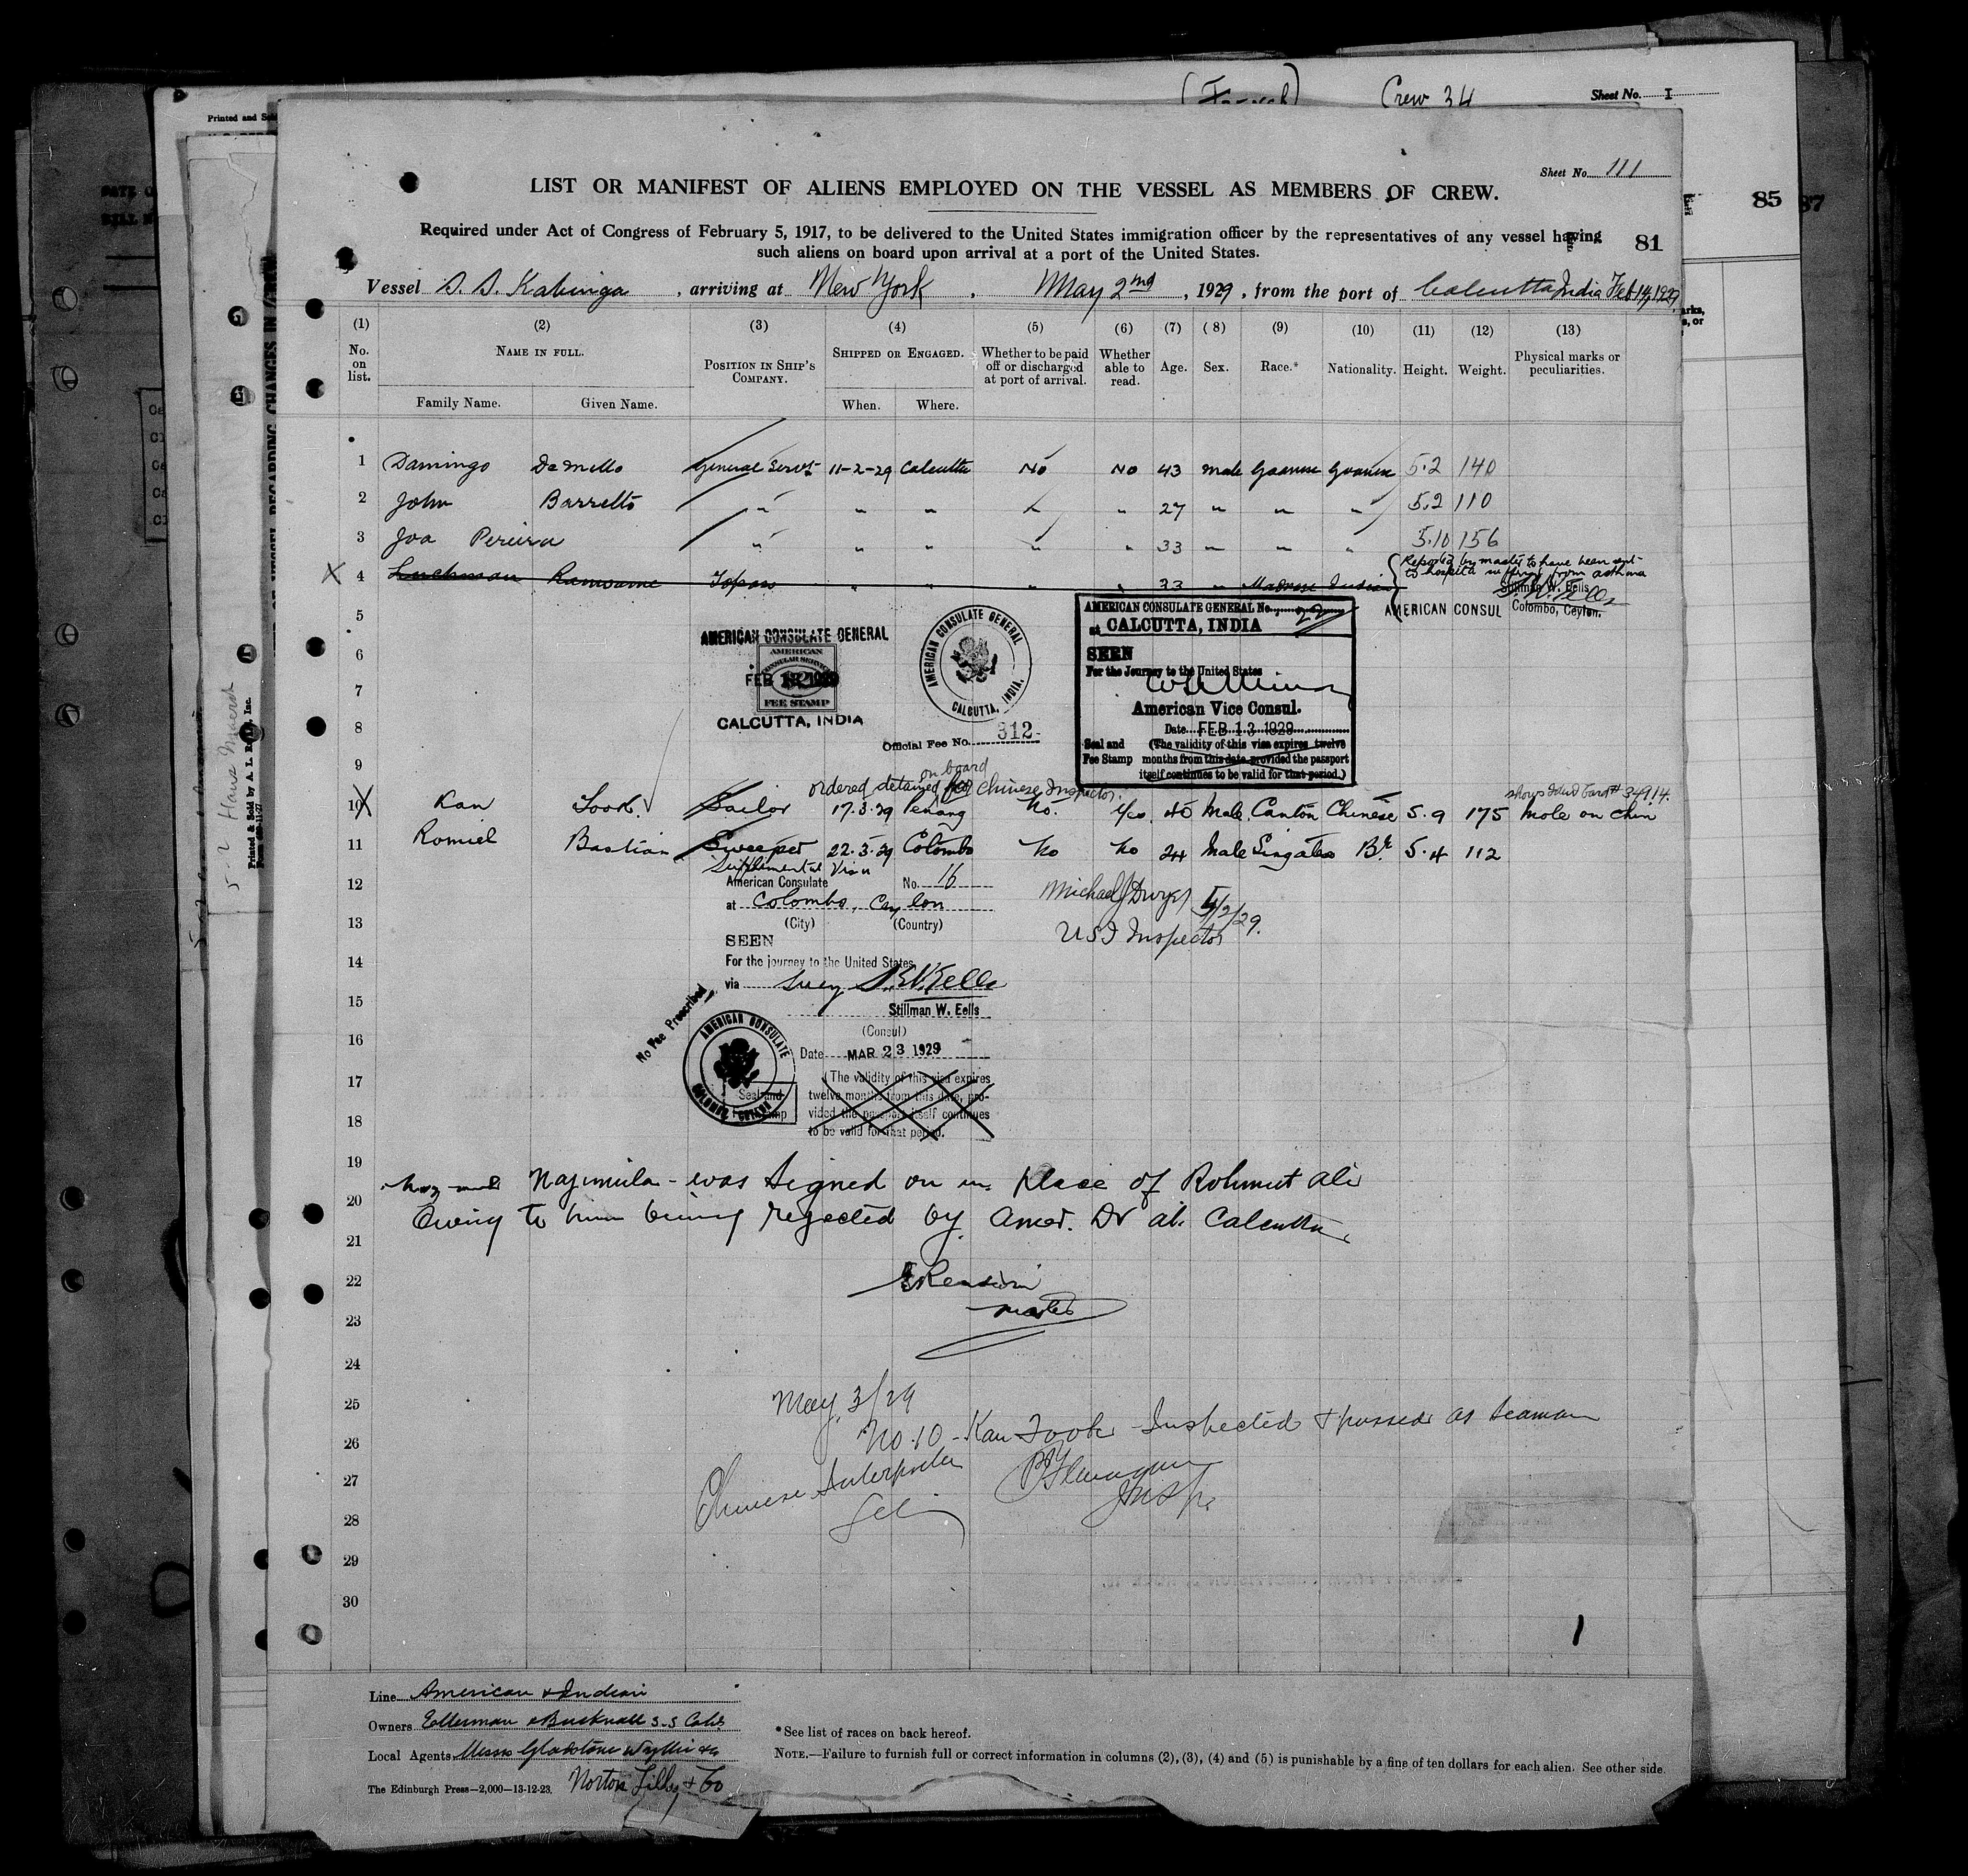 Crew 34
Sheet No. I
Printed and
Sheet No. 111
LIST OR MANIFEST OF ALIENS EMPLOYED ON THE VESSEL AS MEMBERS OF CREW.
Required under Act of Congress of February 5, 1917, to be delivered to the United States immigration officer by the representatives of any vessel having
such aliens on board upon arrival at a port of the United States.
81
85
87
Vessel S. S. Kabinga, arriving at New York, May 2nd, 1929, from the port of Calcutta India Feb 14, 1929
(1) (2) (3) (4) (5) (6) (7) (8) (9) (10) (11) (12) (13)
No. on list. NAME IN FULL. POSITION IN SHIP'S COMPANY. SHIPPED OR ENGAGED. Whether to be paid off or discharged at port of arrival. Whether able to read. Age. Sex. Race.* Nationality. Height. Weight. Physical marks or peculiarities.
Family Name. Given Name. When. Where.
1 Damingo De Mello General Servt 11-2-29 Calcutta No No 43 male Goanese Goanese 5.2 140
2 John Barretto " " " " " 27 " " " 5.2 110
3 Joa Pereira " " " " " 33 " " " 5.10 156
X 4 Luchman Ramsame Topass " " " " 33 " Madrase Indian
Reported by master to have been sent
to hospital suffering from asthma
Stillman W. Eells
AMERICAN CONSUL Colombo, Ceylon.
5
6
7
8
9
AMERICAN CONSULATE GENERAL
AMERICAN
CONSULAR SERVICE
FEB 13 1929
FEE STAMP
CALCUTTA, INDIA
AMERICAN CONSULATE GENERAL
CALCUTTA, INDIA.
Official Fee No. 312
AMERICAN CONSULATE GENERAL No. 22
at CALCUTTA, INDIA
SEEN
For the Journey to the United States
American Vice Consul.
Date FEB 13 1929
Seal and Fee Stamp
(The validity of this visa expires twelve
months from this date provided the passport
itself continues to be valid for that period.)
ordered detained on board for Chinese Inspector.
10 X Kan Fook Sailor 17.3.29 Penang No. Yes 45 Male Canton Chinese 5.9 175 mole on chin
11 Romiel Bastian Sweeper 22.3.29 Colombo No No 24 Male Singales Br. 5.4 112
Supplemental Visa
12
13
14
15
16
17
18
American Consulate No. 16
at Colombo, Ceylon
(City) (Country)
SEEN
For the journey to the United States,
via Suez S.W. Eells
Stillman W. Eells
(Consul)
Date MAR 23 1929
No Fee Prescribed
AMERICAN CONSULATE
COLOMBO, CEYLON
Seal and
Stamp
(The validity of this visa expires
twelve months from this date, pro-
vided the passport itself continues
to be valid for that period.
Michael J Dwyer 5/2/29.
USI Inspector
19
20
21
Najimula - was signed on in place of Rohmut Ali
Owing to him being rejected by Amer. Dr at Calcutta
22
23
24
Master
25
26
27
28
29
30
May 3/29
No. 10 - Kan Fook - Inspected & passed as seaman
Chinese Interpreter
Insp.
1
Line American & Indian
Owners Ellerman & Bucknall S.S Co Ltd
Local Agents Messrs Gladstone Wyllie & Co
The Edinburgh Press—2,000—13-12-23. Norton Lilly & Co
*See list of races on back hereof.
NOTE.—Failure to furnish full or correct information in columns (2), (3), (4) and (5) is punishable by a fine of ten dollars for each alien. See other side.